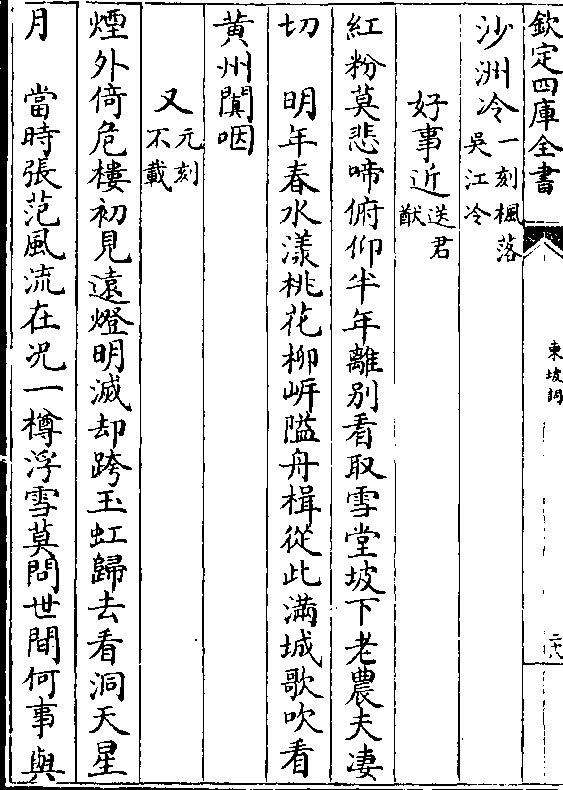 欽定四庫全書
東坡詞
二十八
沙洲冷一刻楓落吳江冷
好事近送君猷
紅粉莫悲啼俯仰半年離別看取雪堂坡下老農夫凄
切　明年春水漾桃花柳岍隘舟楫從此滿城歌吹看
黃州闐咽
又元刻不載
煙外倚危樓初見遠燈明滅却跨玉虹歸去看洞天星
月　當時張范風流在况一樽浮雪莫問世間何事與